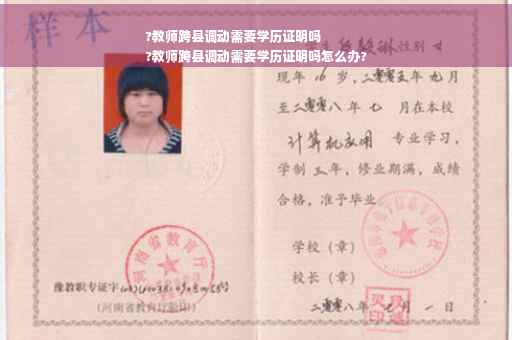 ?教师跨县调动需要学历证明吗
?教师跨县调动需要学历证明吗怎么办?
样本
性别 女
现年 16 岁，二零零五年 九月
至二零零八年 七 月在本校
计算机应用 专业学习，
学制 三年，修业期满，成绩
合格，准予毕业
学校（章）
校长（章）
二零零八年 七月 一日
河南省教育厅
豫教职专证字
(河南省教育厅验印)